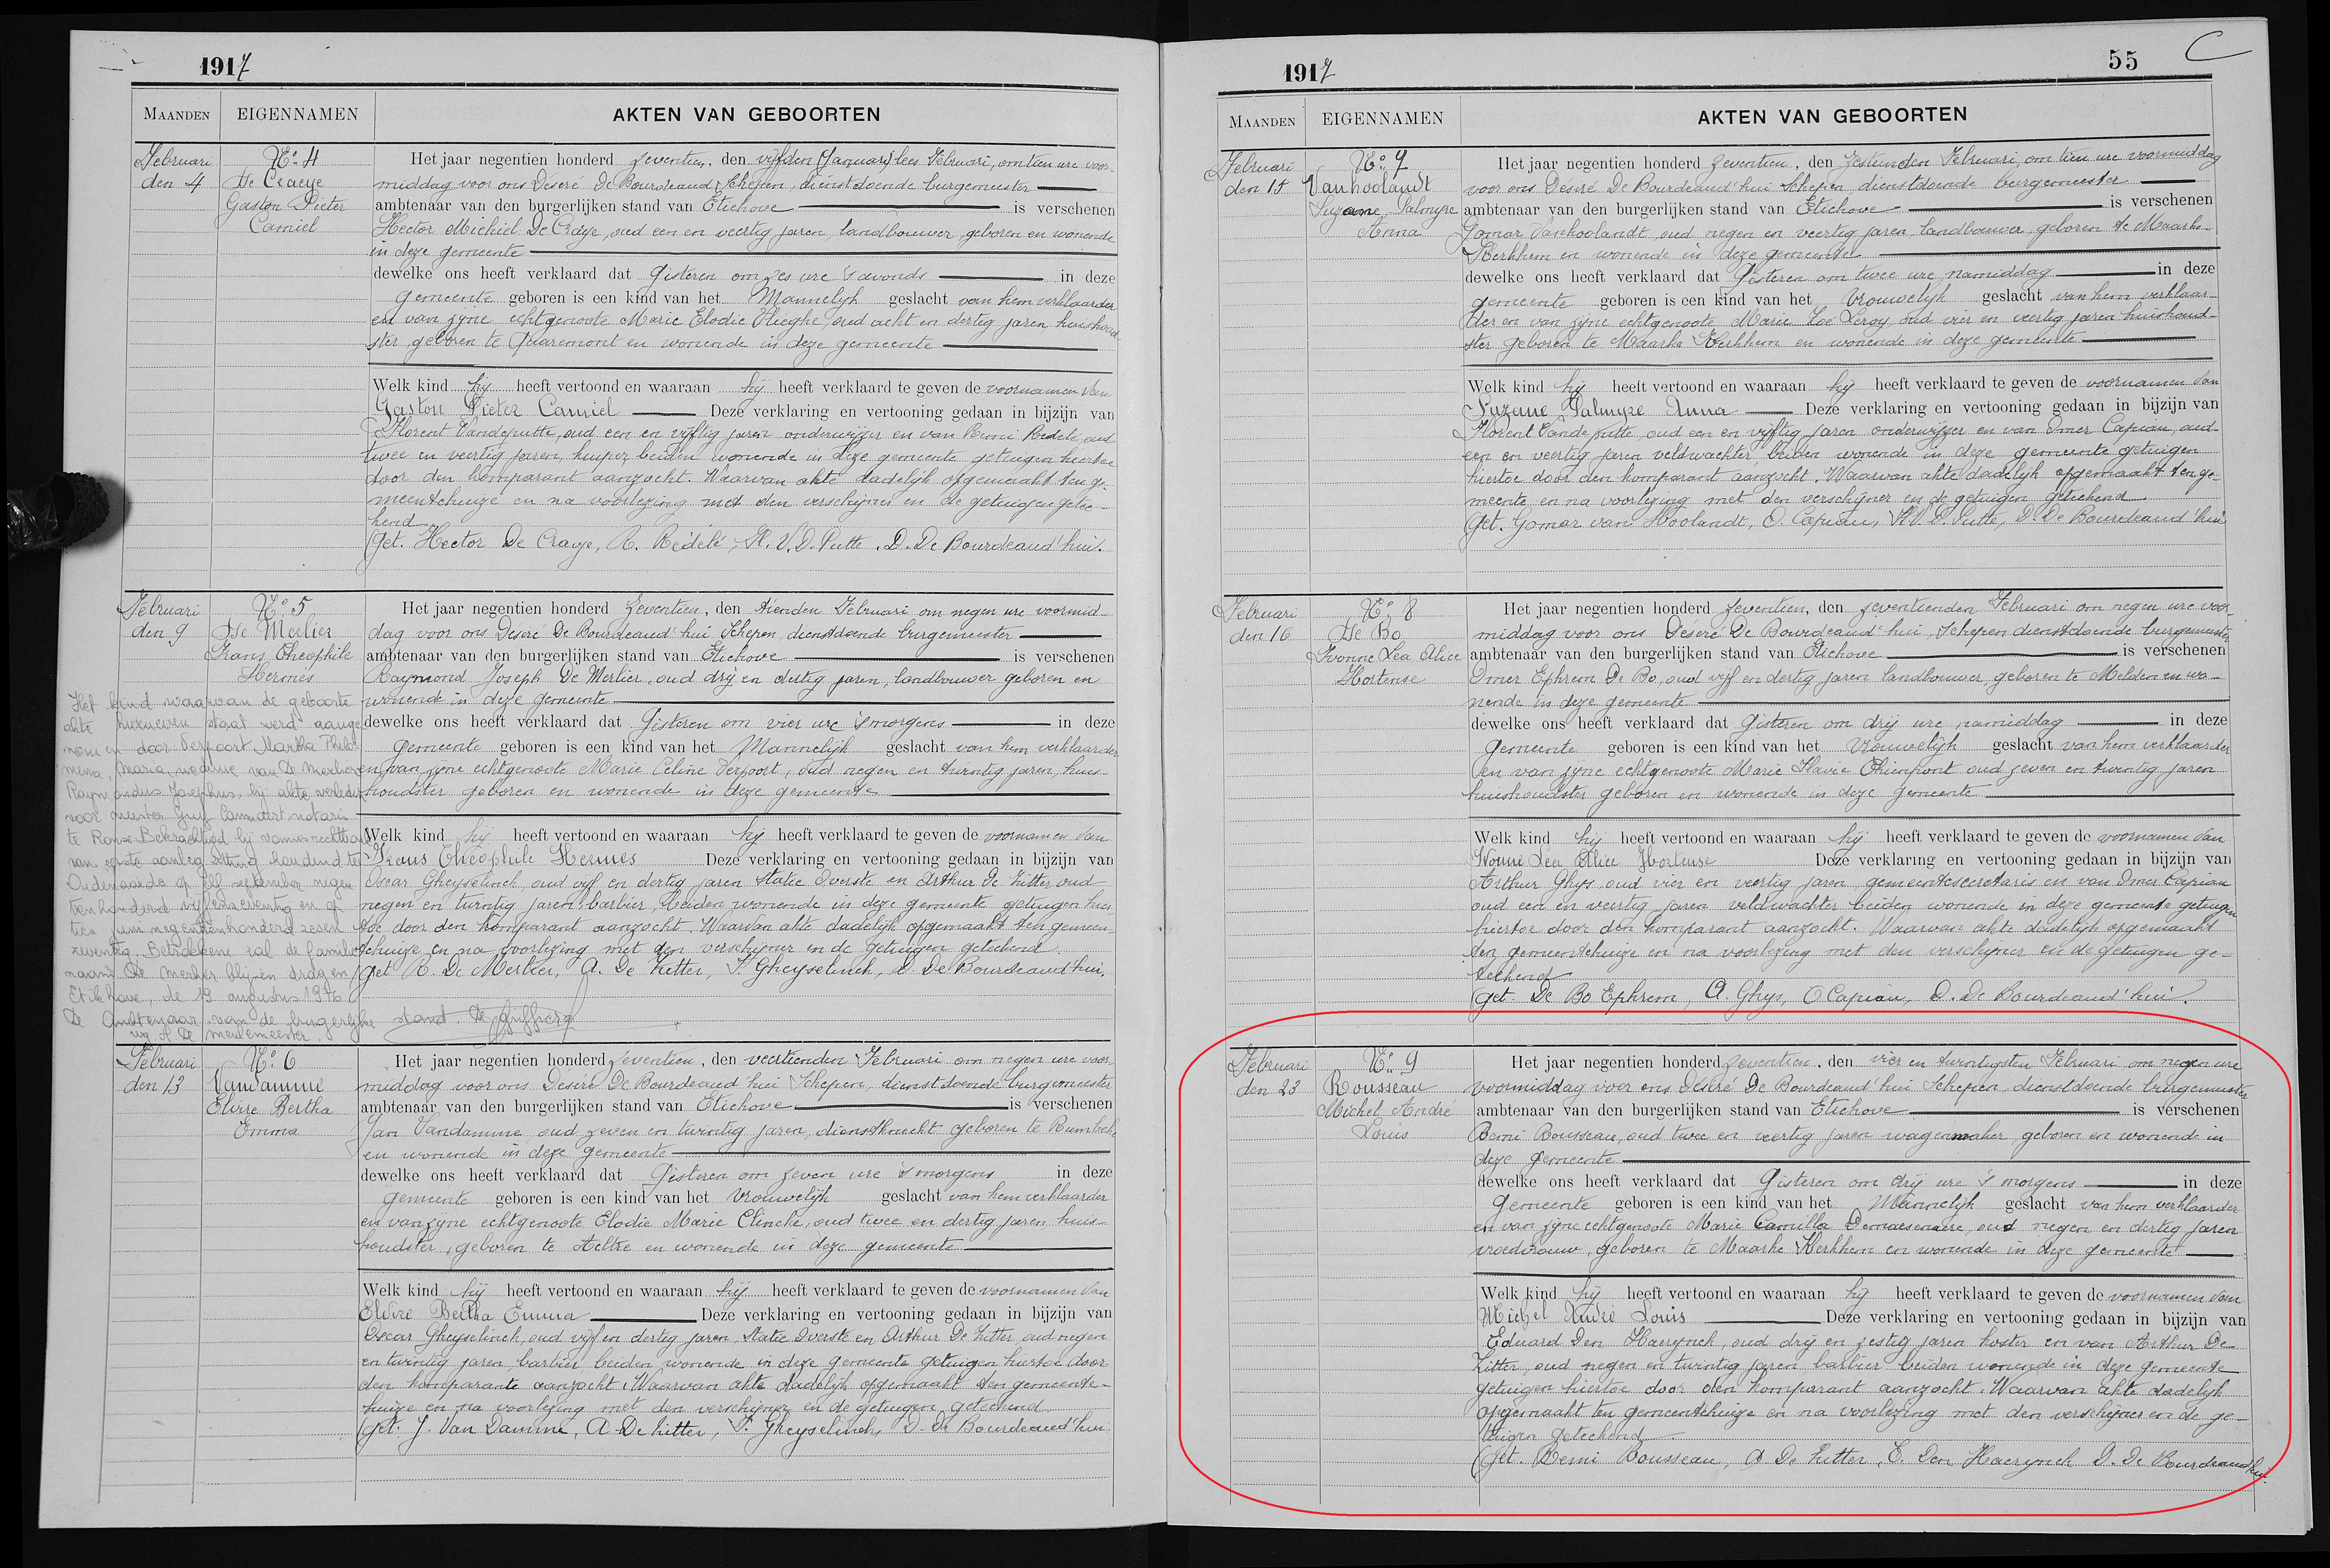 1917
MAANDEN EIGENNAMEN AKTEN VAN GEBOORTEN
Februari
den 4
No 4
De Craeye
Gaston Pieter
Camiel
Het jaar negentien honderd zeventien, den vijfden (Januari) lees Februari, om tien ure voor-
middag voor ons Désiré De Bourdeaud'hui Schepen, dienstdoende burgemeester
ambtenaar van den burgerlijken stand van Etichove is verschenen
Hector Michiel De Craeye, oud een en veertig jaren, landbouwer, geboren en wonende
in deze gemeente
dewelke ons heeft verklaard dat Gisteren om zes ure 's avonds in deze
gemeente geboren is een kind van het Mannelijk geslacht van hem verklaarder
en van zijne echtgenoote Marie Elodie Vlieghe, oud acht en dertig jaren, huishoud-
ster, geboren te Quaremont en wonende in deze gemeente
Welk kind hij heeft vertoond en waaraan hij heeft verklaard te geven de voornamen van
Gaston Pieter Camiel Deze verklaring en vertooning gedaan in bijzijn van
Florent Vandeputte, oud een en vijftig jaren onderwijzer en van Remi Redelé, oud
twee en veertig jaren, kuiper, beiden wonende in deze gemeente getuigen hiertoe
door den komparant aanzocht. Waarvan akte dadelijk opgemaakt ten ge-
meentehuize en na voorlezing met den verschijner en de getuigen getee-
kend
(Get. Hector De Craeye, R. Redelé, Fl. V. D. Putte, D. De Bourdeaud'hui.
Februari
den 9
No 5
De Merlier
Frans Théophile
Hermes
Het jaar negentien honderd zeventien, den tienden Februari om negen ure voormid-
dag voor ons Désiré De Bourdeaud'hui Schepen, dienstdoende burgemeester
ambtenaar van den burgerlijken stand van Etichove is verschenen
Raymond Joseph De Merlier, oud drij en dertig jaren, landbouwer geboren en
wonende in deze gemeente
dewelke ons heeft verklaard dat Gisteren om vier ure 's morgens in deze
gemeente geboren is een kind van het Mannelijk geslacht van hem verklaarder
en van zijne echtgenoote Marie Celine Verpoort, oud negen en twintig jaren, huis-
houdster geboren en wonende in deze gemeente
Welk kind hij heeft vertoond en waaraan hij heeft verklaard te geven de voornamen van
Frans Théophile Hermes Deze verklaring en vertooning gedaan in bijzijn van
Oscar Gheyselinck, oud vijf en dertig jaren Statie Overste en Arthur De Zitter, oud
negen en twintig jaren, barbier, beiden wonende in deze gemeente getuigen hier-
toe door den komparant aanzocht. Waarvan akte dadelijk opgemaakt ten gemeen-
tehuize en na voorlezing met den verschijner en de getuigen geteekend.
(Get. R. De Merlier, A. De Zitter, O. Gheyselinck, D. De Bourdeaud'hui.
Het kind waarvan de geboorte
akte hierneven staat werd aange
nomen door Verpoort Martha Philo
mena, Maria, weduwe van De Merlier
Raymondus Josephus, bij akte verleden
voor meester Guy Cammaert notaris
te Ronse. Bekrachtigd bij vonnis rechtbank
van eerste aanleg zitting houdend te
Oudenaarde op elf september negen
tienhonderd vijfenzeventig en op
tien juni negentienhonderd zesen
zeventig. Betrokkene zal de familie
naam De Merlier blijven dragen
Etikhove, de 19 augustus 1976
De Ambtenaar van de burgerlijke stand. De griffier
wg. A. De Meulemeester.
Februari
den 13
No 6
Vandamme
Elvire Bertha
Emma
Het jaar negentien honderd zeventien, den veertienden Februari om negen ure voor
middag voor ons Désiré De Bourdeaud'hui Schepen, dienstdoende burgemeester
ambtenaar van den burgerlijken stand van Etichove is verschenen
Jan Vandamme, oud zeven en twintig jaren, dienstknecht geboren te Rumbeke
en wonende in deze gemeente
dewelke ons heeft verklaard dat Gisteren om zeven ure 's morgens in deze
gemeente geboren is een kind van het Vrouwelijk geslacht van hem verklaarder
en van zijne echtgenoote Elodie Marie Clincke, oud twee en dertig jaren, huis-
houdster, geboren te Aeltre en wonende in deze gemeente
Welk kind hij heeft vertoond en waaraan hij heeft verklaard te geven de voornamen van
Elvire Bertha Emma Deze verklaring en vertooning gedaan in bijzijn van
Oscar Gheyselinck, oud vijf en dertig jaren, Statie Overste en Arthur De Zitter, oud negen
en twintig jaren barbier beiden wonende in deze gemeente getuigen hiertoe door
den komparante aanzocht. Waarvan akte dadelijk opgemaakt ten gemeente-
huize en na voorlezing met den verschijner en de getuigen geteekend.
(Get. J. Van Damme, A. De Zitter, O. Gheyselinck, D. De Bourdeaud'hui
1917
55
C
MAANDEN EIGENNAMEN AKTEN VAN GEBOORTEN
Februari
den 15
No 7
Vanhoolandt
Suzanne Palmyre
Anna
Het jaar negentien honderd zeventien, den zestienden Februari, om tien ure voormiddag
voor ons Désiré De Bourdeaud'hui Schepen, dienstdoende burgemeester
ambtenaar van den burgerlijken stand van Etichove is verschenen
Gomar Vanhoolandt, oud negen en veertig jaren, landbouwer, geboren te Maarke-
Kerkhem en wonende in deze gemeente
dewelke ons heeft verklaard dat Gisteren om twee ure namiddag in deze
gemeente geboren is een kind van het Vrouwelijk geslacht van hem verklaar-
der en van zijne echtgenoote Marie Zoé Leroy, oud vier en veertig jaren huishoud-
ster geboren te Maarke Kerkhem en wonende in deze gemeente
Welk kind hij heeft vertoond en waaraan hij heeft verklaard te geven de voornamen van
Suzane Palmyre Anna Deze verklaring en vertooning gedaan in bijzijn van
Florent Vande putte, oud een en vijftig jaren onderwijzer en van Omer Capiau, oud-
een en veertig jaren veldwachter, beiden wonende in deze gemeente getuigen
hiertoe door den komparant aanzocht. Waarvan akte dadelijk opgemaakt ten ge-
meente en na voorlezing met den verschijner en de getuigen geteekend
(Get. Gomar van Hoolandt, O. Capiau, Fl. V. D. Putte, D. De Bourdeaud'hui
Februari
den 16
No 8
De Bo
Ivonne Lea Alice
Hortense
Het jaar negentien honderd zeventien, den zeventienden Februari om negen ure voor
middag voor ons Désiré De Bourdeaud'hui, Schepen dienstdoende burgemeester
ambtenaar van den burgerlijken stand van Etichove is verschenen
Omer Ephrem De Bo, oud vijf en dertig jaren landbouwer, geboren te Melden en wo-
nende in deze gemeente
dewelke ons heeft verklaard dat Gisteren om drij ure namiddag in deze
gemeente geboren is een kind van het Vrouwelijk geslacht van hem verklaarder
en van zijne echtgenoote Marie Flavie Thienpont oud zeven en twintig jaren
huishoudster geboren en wonende in deze gemeente
Welk kind hij heeft vertoond en waaraan hij heeft verklaard te geven de voornamen van
Ivonne Lea Alice Hortense Deze verklaring en vertooning gedaan in bijzijn van
Arthur Ghys, oud vier en veertig jaren, gemeentesecretaris en van Omer Capiau
oud een en veertig jaren veldwachter beiden wonende in deze gemeente getuigen
hiertoe door den komparant aanzocht. Waarvan akte dadelijk opgemaakt
ten gemeentehuize en na voorlezing met den verschijner en de getuigen ge-
teekend
(Get. De Bo Ephrem, A. Ghys, O Capiau, D. De Bourdeaud'hui.
Februari
den 23
No 9
Rousseau
Michel André
Louis
Het jaar negentien honderd zeventien, den vier en twintigsten Februari, om negen ure
voormiddag voor ons Désiré De Bourdeaud'hui Schepen, dienstdoende burgemeester
ambtenaar van den burgerlijken stand van Etichove is verschenen
Remi Rousseau, oud twee en veertig jaren wagenmaker, geboren en wonende in
deze gemeente
dewelke ons heeft verklaard dat Gisteren om drij ure 's morgens in deze
gemeente geboren is een kind van het Mannelijk geslacht van hem verklaarder
en van zijne echtgenoote Marie Camilla Demaeseneire, oud negen en dertig jaren
vroedvrouw, geboren te Maarke Kerkhem en wonende in deze gemeente
Welk kind hij heeft vertoond en waaraan hij heeft verklaard te geven de voornamen van
Michel André Louis Deze verklaring en vertooning gedaan in bijzijn van
Eduard Den Haerynck, oud drij en zestig jaren koster en van Arthur De
Zitter, oud negen en twintig jaren barbier beiden wonende in deze gemeente
getuigen hiertoe door den komparant aanzocht. Waarvan akte dadelijk
opgemaakt ten gemeentehuize en na voorlezing met den verschijner en de ge-
tuigen geteekend
(Get. Remi Rousseau, A De Zitter, E. Den Haerynck D. De Bourdeaud'hui.